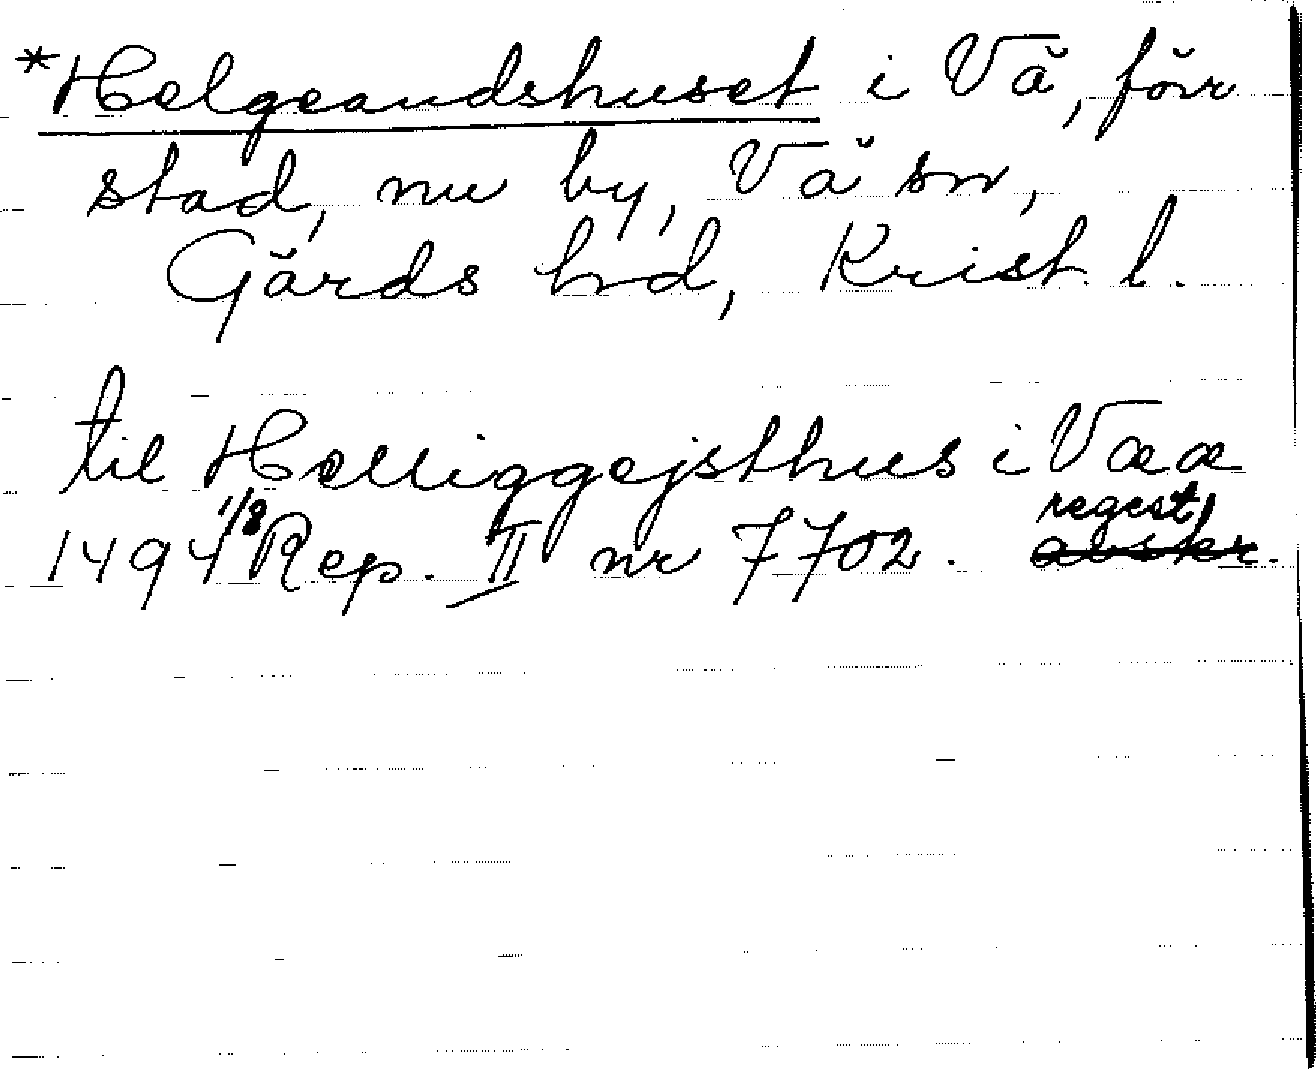 *Helgeandshuset i Vä, förr
stad, nu by, Vä sn,
Gärds hd, Krist. l.
til Helliggejsthus i Vææ
1494 1/8 Rep. II nr 7702. regest, avskr.